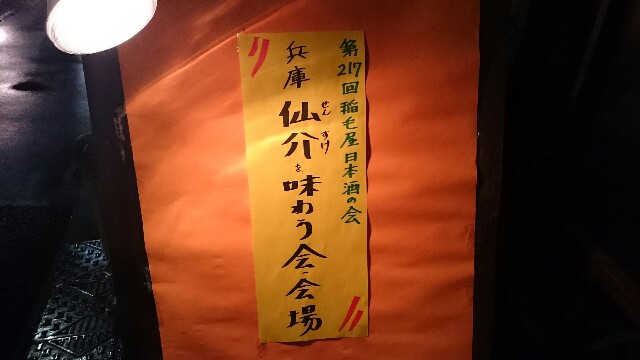 第217回稲毛屋日本酒の会
兵庫仙介を味わう会・会場
せんすけ